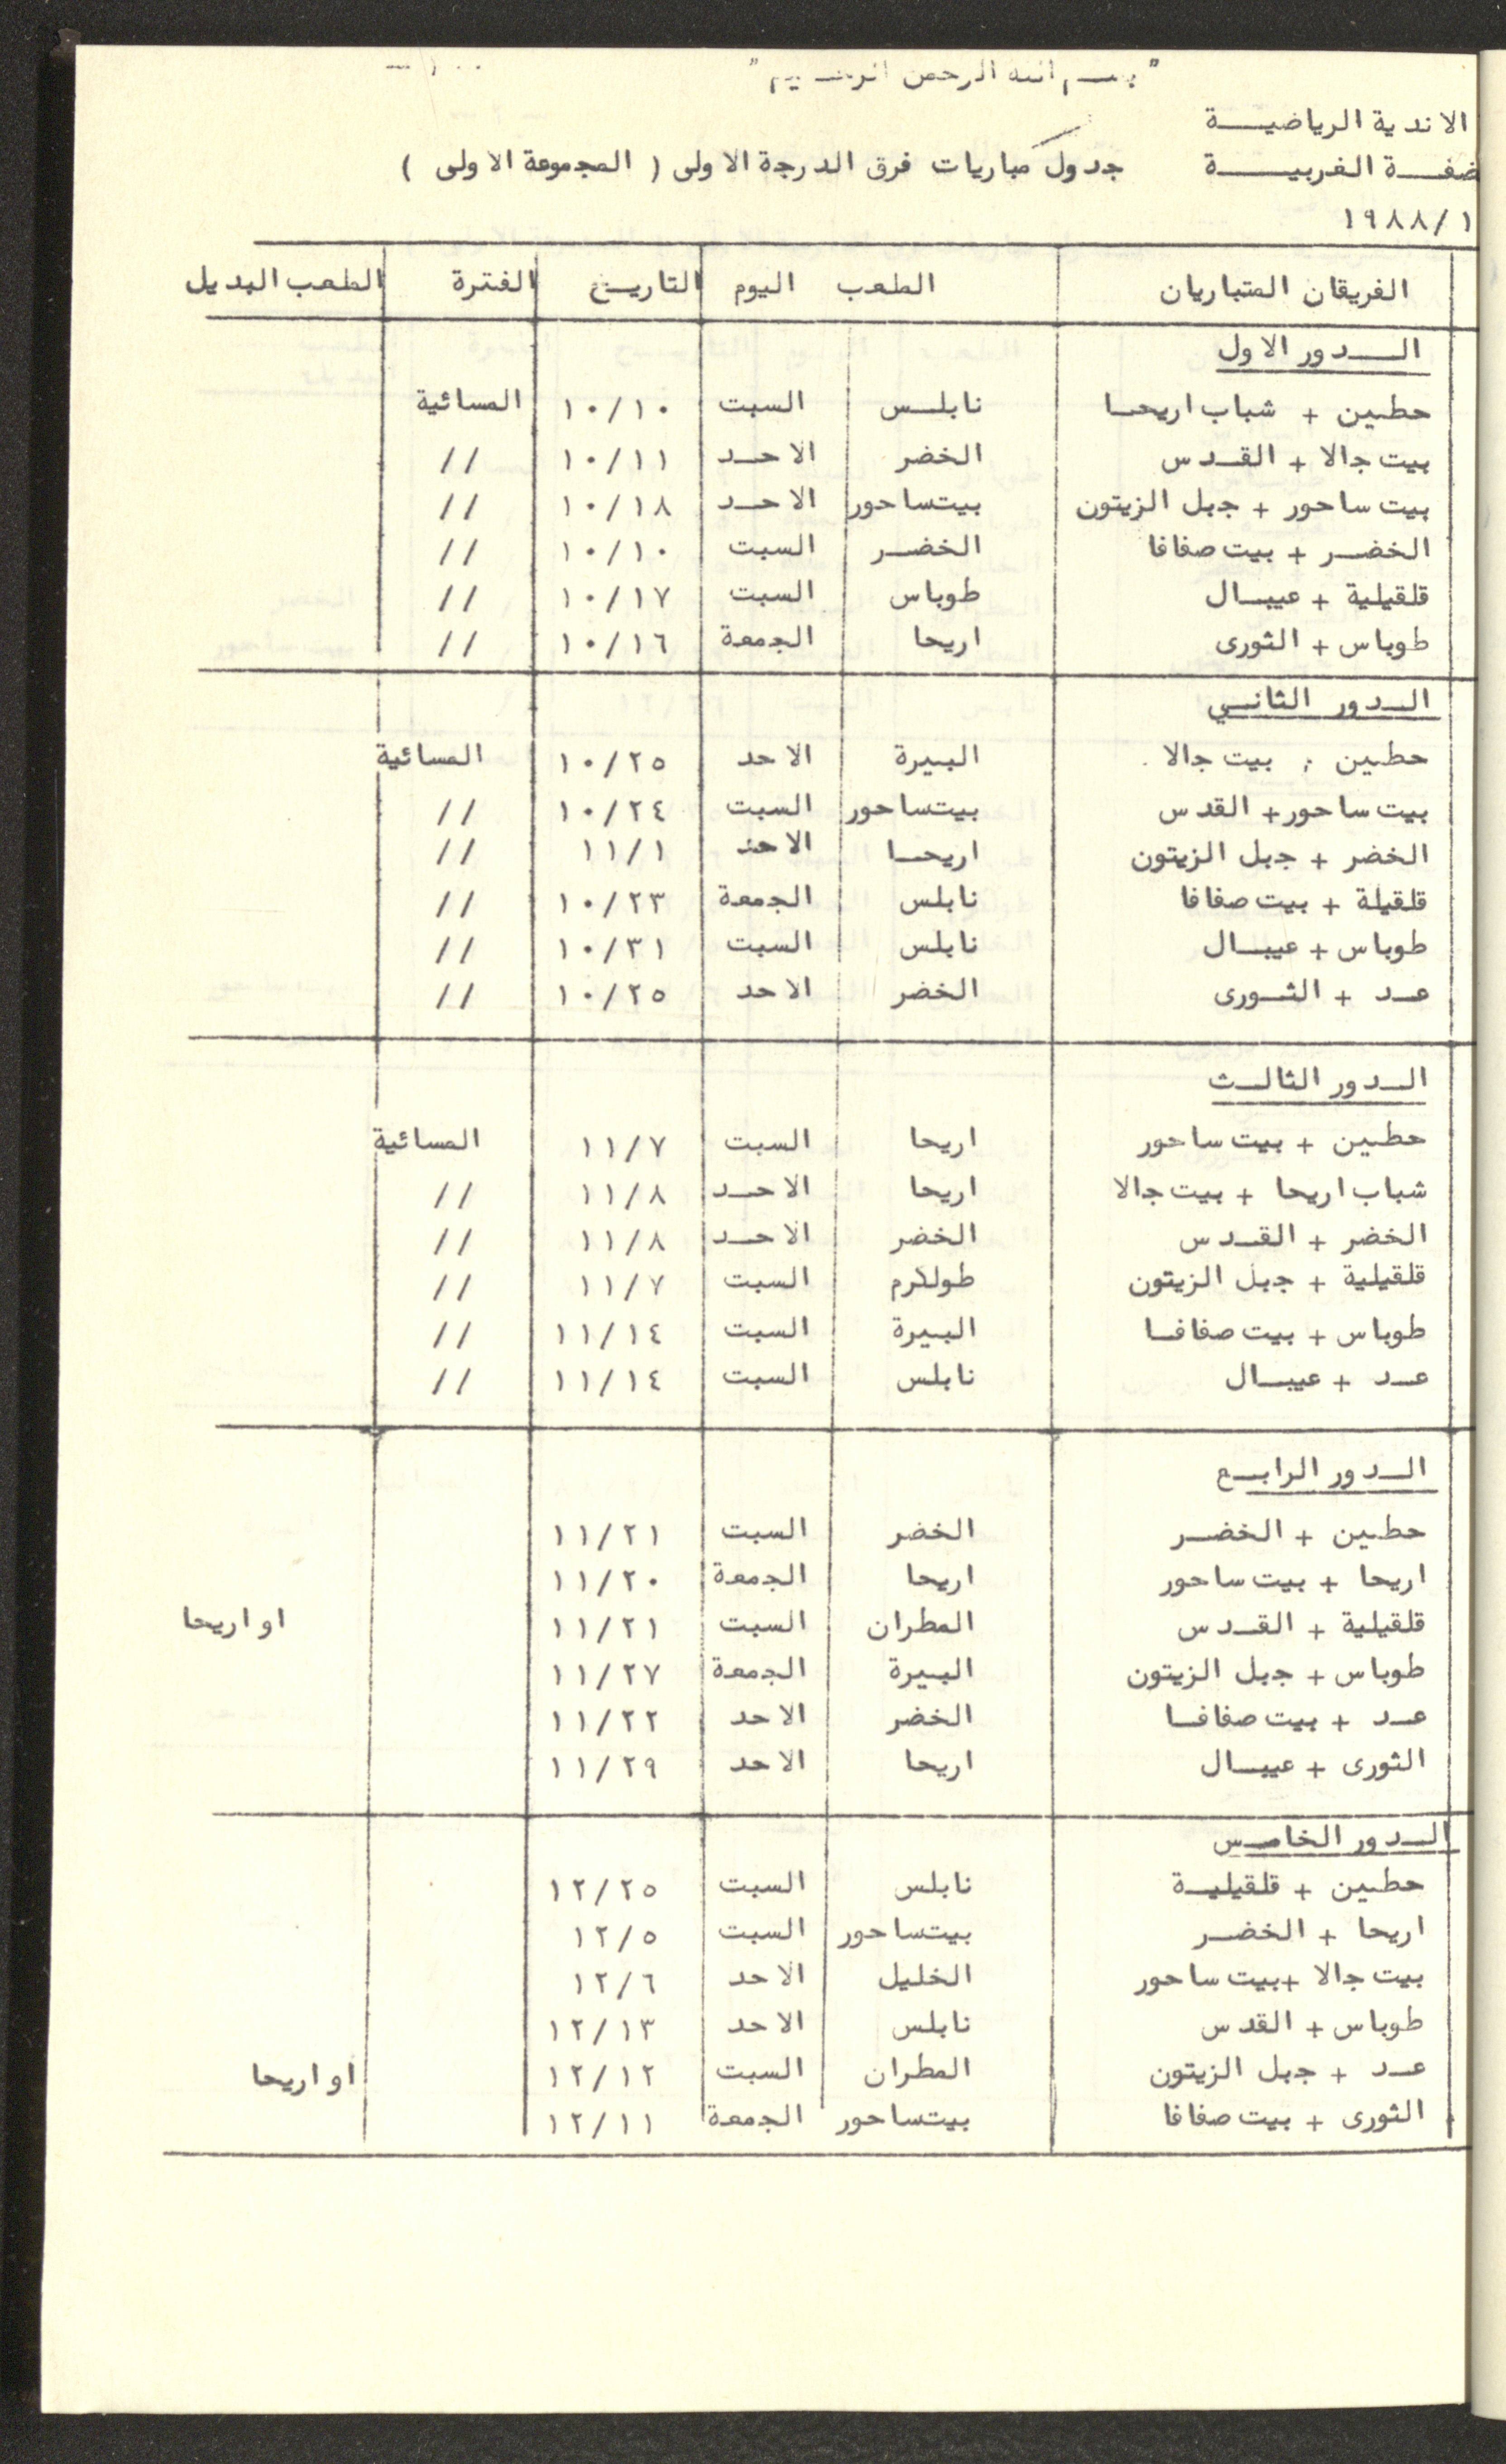 "بسم الله الرحمن الرحيم"
الاندية الرياضية
ضفة الغربية جدول مباريات فرق الدرجة الاولى ( المجموعة الاولى )
١٩٨٨/١
الفريقان المتباريان الطعب اليوم التاريخ الفترة الطعب البديل
الدور الاول
حطين + شباب اريحا نابلس السبت ١٠/١٠ المسائية
بيت جالا + القدس الخضر الاحد ١٠/١١ //
بيت ساحور + جبل الزيتون بيتساحور الاحد ١٠/١٨ //
الخضر + بيت صفافا الخضر السبت ١٠/١٠ //
قلقيلية + عيبال طوباس السبت ١٠/١٧ //
طوباس + الثورى اريحا الجمعة ١٠/١٦ //
الدور الثاني
حطين + بيت جالا البيرة الاحد ١٠/٢٥ المسائية
بيت ساحور+ القدس بيتساحور السبت ١٠/٢٤ //
الخضر + جبل الزيتون اريحا الاحد ١١/١ //
قلقيلة + بيت صفافا نابلس الجمعة ١٠/٢٣ //
طوباس + عيبال نابلس السبت ١٠/٣١ //
عد + الثورى الخضر الاحد ١٠/٢٥ //
الدور الثالث
حطين + بيت ساحور اريحا السبت ١١/٧ المسائية
شباب اريحا + بيت جالا اريحا الاحد ١١/٨ //
الخضر + القدس الخضر الاحد ١١/٨ //
قلقيلية + جبل الزيتون طولكرم السبت ١١/٧ //
طوباس + بيت صفافا البيرة السبت ١١/١٤ //
عد + عيبال نابلس السبت ١١/١٤ //
الدور الرابع
حطين + الخضر الخضر السبت ١١/٢١
اريحا + بيت ساحور اريحا الجمعة ١١/٢٠
قلقيلية + القدس المطران السبت ١١/٢١ او اريحا
طوباس + جبل الزيتون البيرة الجمعة ١١/٢٧
عد + بيت صفافا الخضر الاحد ١١/٢٢
الثورى + عيبال اريحا الاحد ١١/٢٩
الدور الخامس
حطين + قلقيلية نابلس السبت ١٢/٢٥
اريحا + الخضر بيتساحور السبت ١٢/٥
بيت جالا +بيت ساحور الخليل الاحد ١٢/٦
طوباس + القدس نابلس الاحد ١٢/١٣
عد + جبل الزيتون المطران السبت ١٢/١٢ او اريحا
الثورى + بيت صفافا بيتساحور الجمعة ١٢/١١